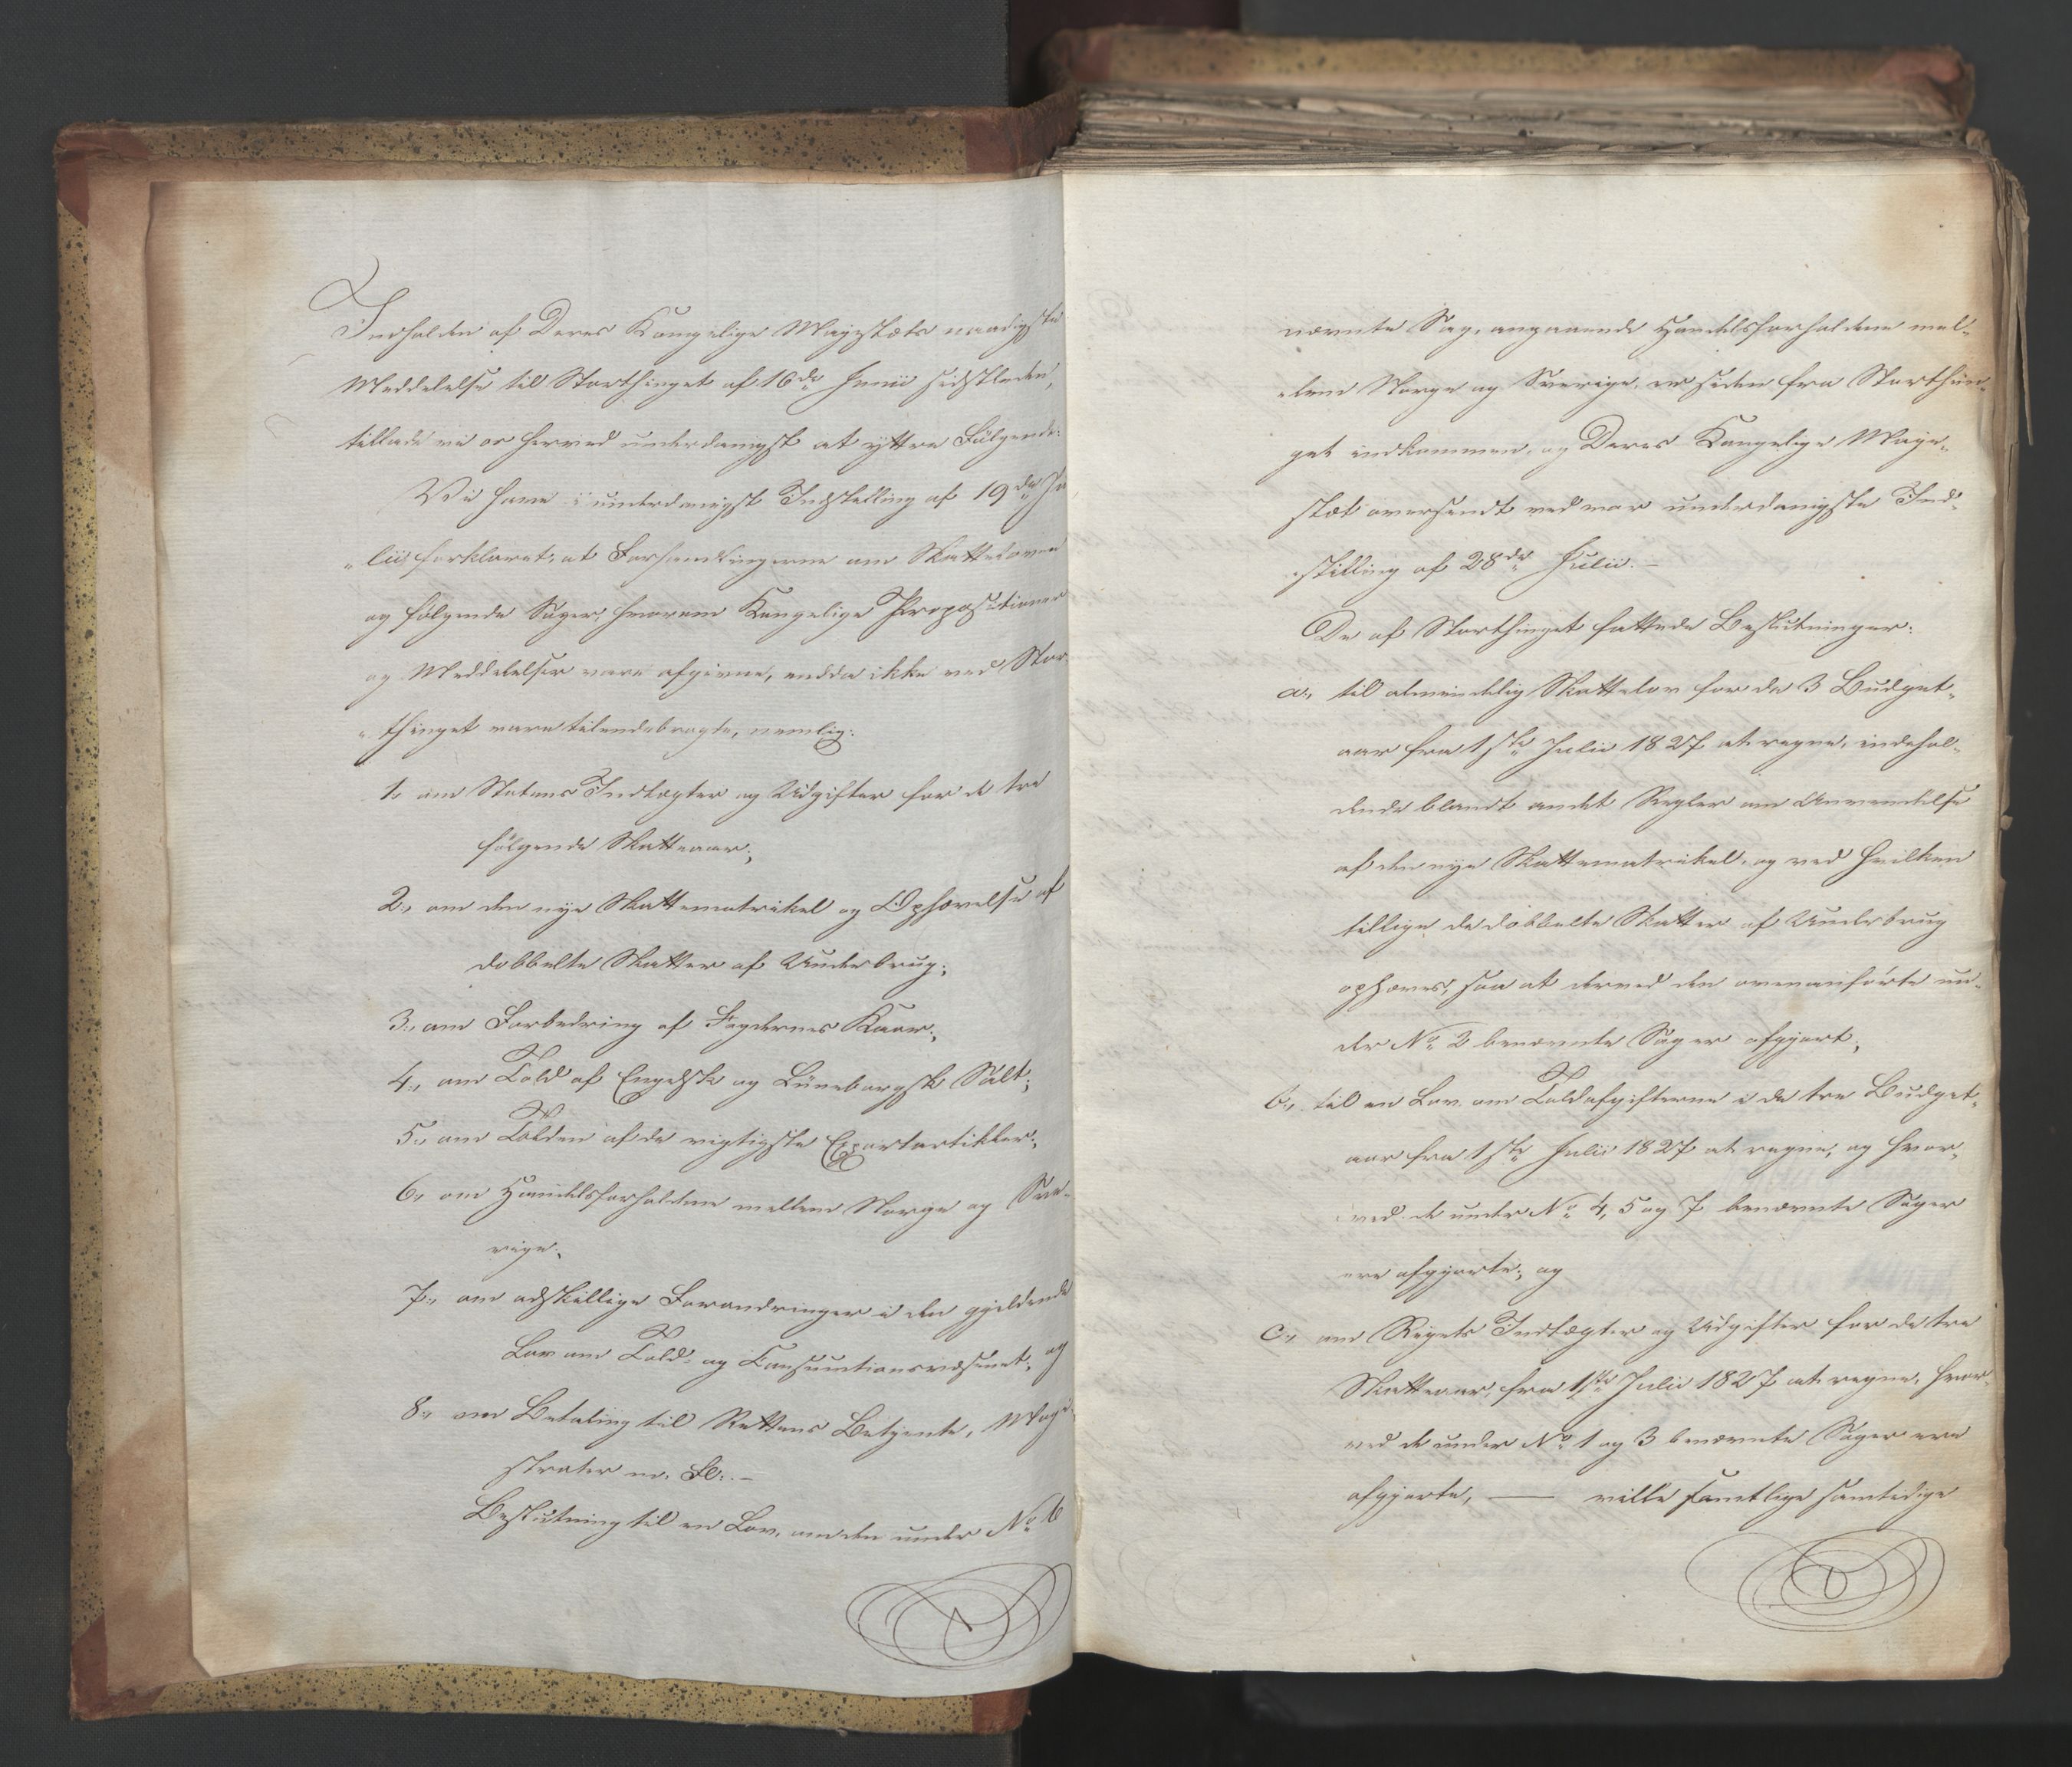 Indholden af Deres Kongelige Majestæts naadigste
Meddelelse til Storthinget af 16de Junii sidstleden,
tillade vi os herved underdanigst at yttre Følgende:
Vi have i underdanigst Indstilling af 19de Ju
„lii forklaret, at Forhandlingerne om Skatteloven
og følgende Sager, hvorom Kongelige Propositioner
og Meddelelser vare afgivne, endda ikke ved Stor
„thinget vare tilendebragte, nemlig:
1., om Statens Indtægter og Udgifter for de tre
følgende Skatteaar;
2., om den nye Skattematrikel og Ophævelse af
dobbelte Skatter af Underbrug;
3., om Forbedring af Fogdernes Kaar;
4., om Told af Engelsk og Lüneborgsk Salt;
5., om Tolden af de vigtigste Exportartikler;
6., om Handelsforholdene mellem Norge og Sve-
rige;
7., om adskillige Forandringer i den gjeldende
Lov om Told- og Consumtionsvæsenet; og
8., om Betaling til Rettens Betjente, Magi-
strater m. Fl:. –
Beslutning til en Lov, om den under No 6
nævnte Sag, angaaende Handelsforholdene mel-
„lem Norge og Sverige, er siden fra Storthin-
get indkommen, og Deres Kongelige Maje-
stæt oversendt ved vor underdanigste Ind-
„stilling af 28de Julii. –
De af Storthinget fattede Beslutninger:
a., til almindelig Skattelov for de 3 Budget-
aar fra 1ste Julii 1827 at regne, indehol-
dende blandt andet Regler om Anvendelse
af den nye Skattematrikel, og ved hvilken
tillige de dobbelte Skatter af Underbrug
ophæves, saa at derved den ovenanførte un-
der No 2 benævnte Sag er afgjort;
b., til en Lov om Toldafgifterne i de tre Budget-
aar fra 1ste Julii 1827 at regne, og hvor-
ved de under No 4, 5 og 7 benævnte Sager
ere afgjorte; og
c., om Rigets Indtægter og Udgifter for de tre
Skatteaar, fra 1ste Julii 1827 at regne, hvor-
ved de under No 1 og 3 benævnte Sager ere
afgjorte, — ville samtlige samtidige